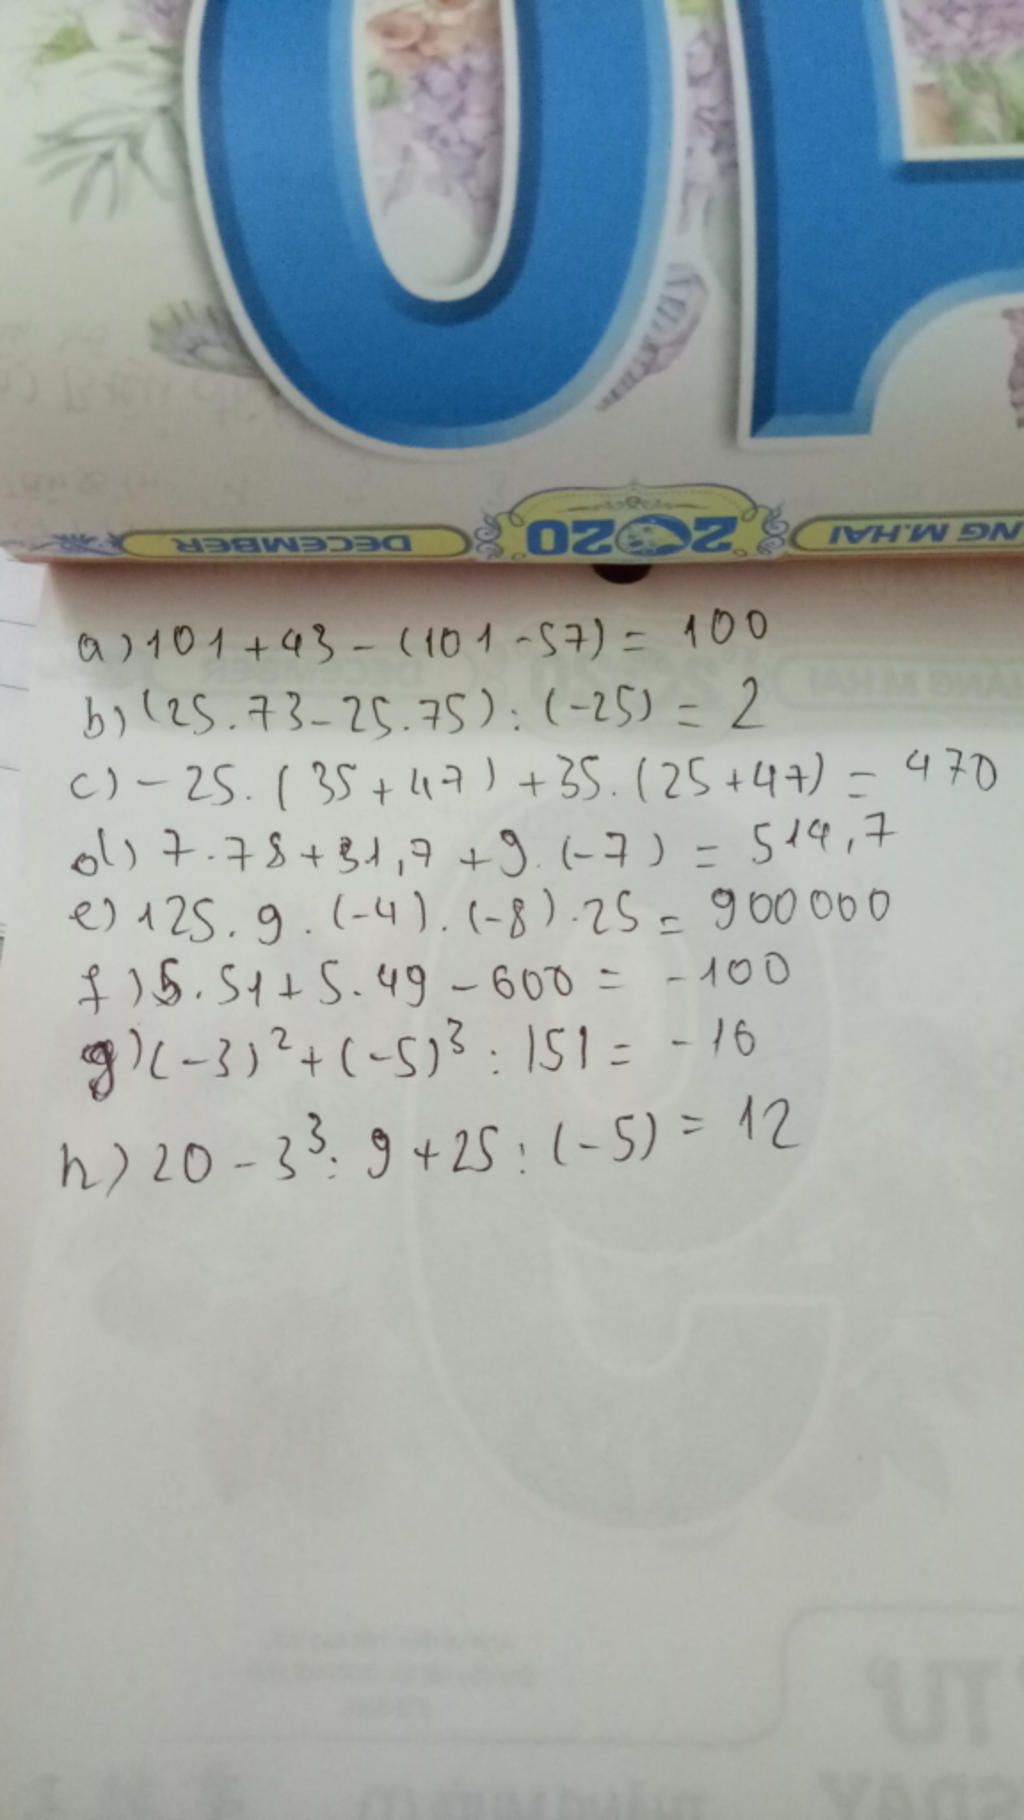 DECEMBER
2020
NG M.HAI
a) 101 + 43 - (101 - 57) = 100
b) (25.73 - 25.75) : (-25) = 2
c) - 25. (35 + 47) + 35. (25 + 47) = 470
d) 7.78 + 31,7 + 9. (-7) = 514,7
e) 125. 9. (-4). (-8). 25 = 900000
f) 5. 51 + 5. 49 - 600 = - 100
g) (-3)² + (-5)³ : |5| = - 16
h) 20 - 3³ : 9 + 25 : (-5) = 12